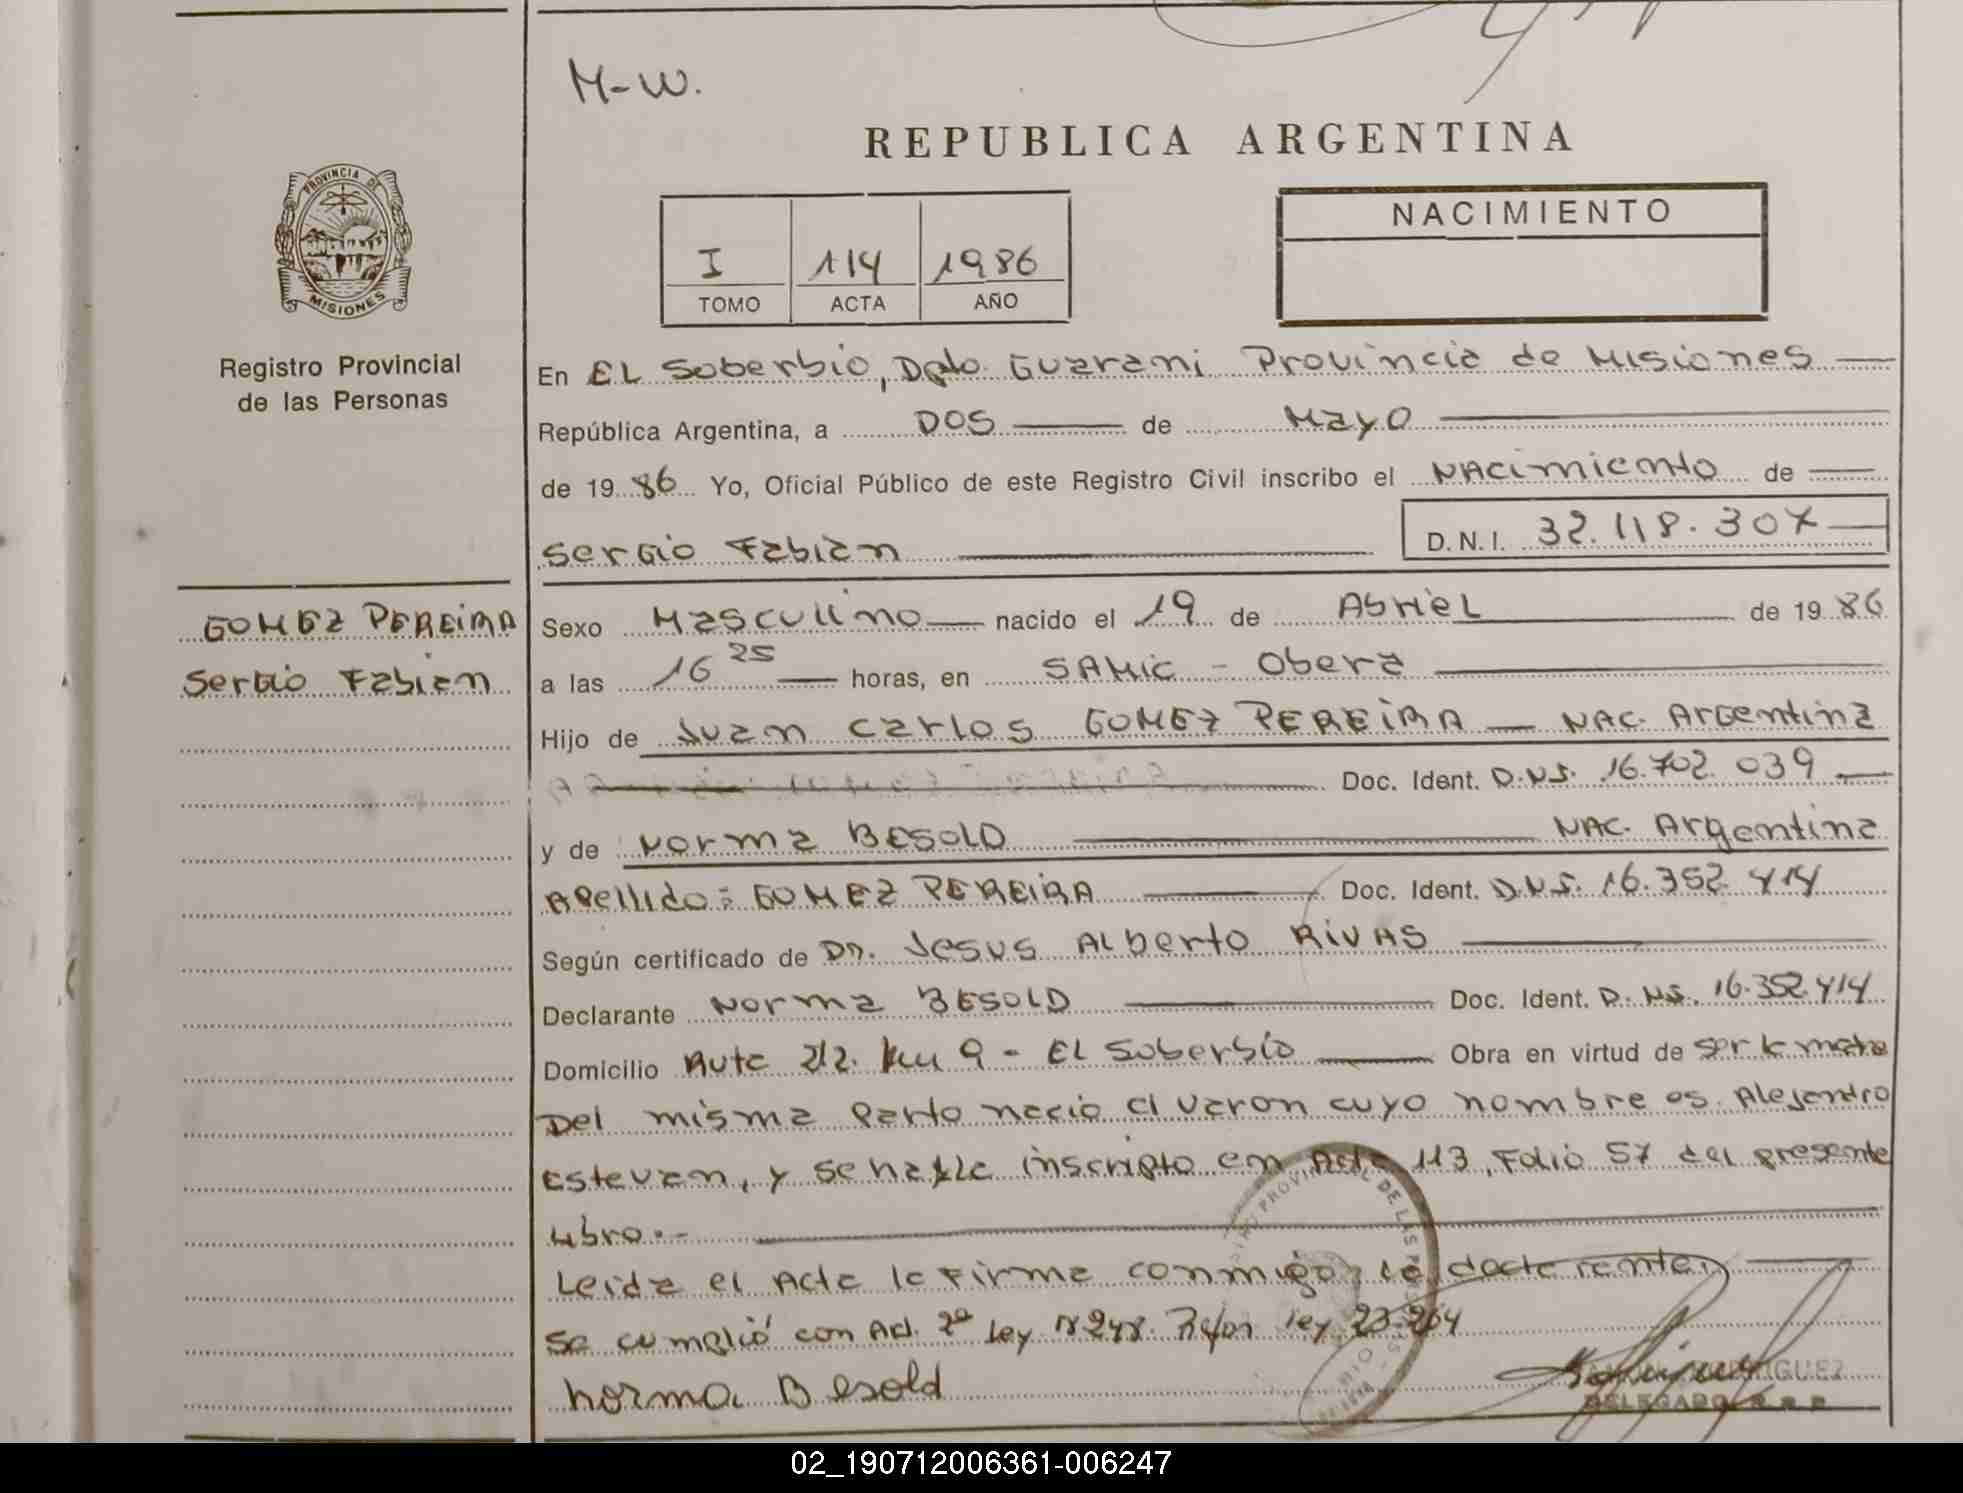 M-W.
REPUBLICA ARGENTINA
PROVINCIA DE
MISIONES
Registro Provincial
de las Personas
I 114 1986
TOMO ACTA AÑO
NACIMIENTO
En EL Soberbio, Dpto. Guarani Provincia de Misiones
República Argentina, a DOS de Mayo
de 1986 Yo, Oficial Público de este Registro Civil inscribo el NACimiento de
Sergio Fabian D.N.I. 32.118.307
GOMEZ PEREiRA
Sergio Fabian
Sexo Masculino nacido el 19 de Abriel de 1986
a las 16 25 horas, en SAMic - Obera
Hijo de Juan Carlos GOMEZ PEREiRA NAC. Argentina
Doc. Ident. D.N.I. 16.702.039
y de Norma BESOLD NAC. Argentina
Apellido: GOMEZ PEREiRA Doc. Ident. D.N.I. 16.352.414
Según certificado de Dr. Jesus Alberto RiVAS
Declarante Norma BESOLD Doc. Ident. D.N.I. 16.352.414
Domicilio Ruta 212. km 9 - EL Soberbio Obra en virtud de ser la madre
Del misma Parto nacio el varon cuyo nombre es Alejandro
Estevan, y se halla inscripto en Acta 113, Folio 57 del presente
Libro.-
Leida el Acta la Firma conmigo la
Se cumplió con Ley 23.264
Norma Besold
DELEGADO R.P.P.
02_190712006361-006247